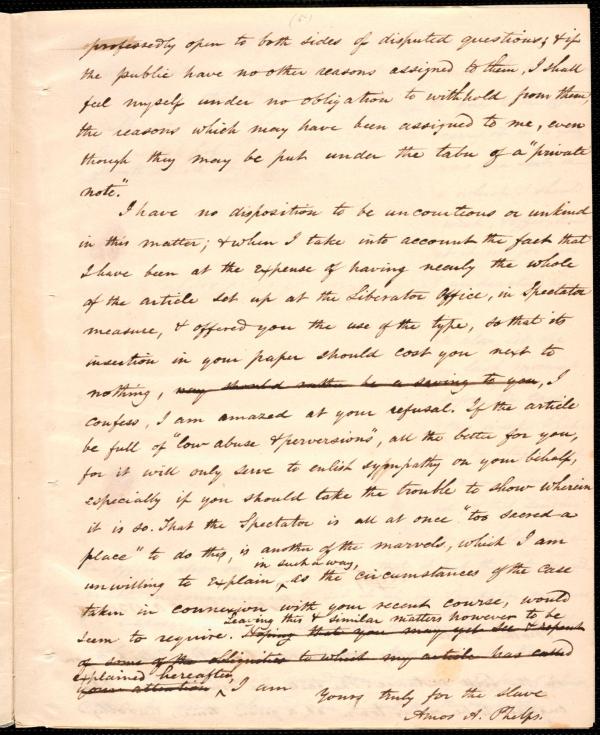 (5)
professedly open to both sides of disputed questions; & if
the public have no other reasons assigned to them, I shall
feel myself under no obligation to withhold from them
the reasons which may have been assigned to me, even
though they may be put under the tabu of a "private
note."
I have no disposition to be uncourteous or unkind
in this matter; & when I take into account the fact that
I have been at the expense of having nearly the whole
of the article set up at the Liberator Office, in Spectator
measure, & offered you the use of the type, so that its
insertion in your paper should cost you next to
nothing, nay should rather be a saving to you, I
confess, I am amazed at your refusal. If the article
be full of "low abuse & perversions", all the better for you,
for it will only serve to enlish sympathy on your behalf,
especially if you should take the trouble to show wherein
it is so. That the Spectator is all at once "too sacred a
place" to do this, is another of the marvels, which I am
in such a way,
unwilling to explain, as the circumstances of the case
taken in connexion with your recent course, would
Leaving this & similar matters however to be
seem to require. Hoping that you may yet see & repent
of some of the obliquities to which my article has called
explained hereafter,
your attention, I am
Yours truly for the slave
Amos A. Phelps.